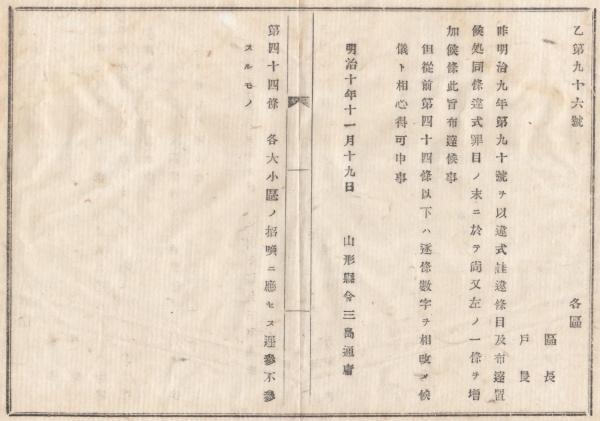 乙第九十六號
各區
區長
戸長
昨明治九年第九十號ヲ以違式詿違條目及布達置
候処同條違式罪目ノ末ニ於テ尚又左ノ一條ヲ増
加候條此旨布達候事
但從前第四十四條以下ハ逐條數字ヲ相改メ候
儀ト相心得可申事
明治十年十一月十九日
山形縣令三島通庸
第四十四條 各大小區ノ招喚ニ應セス遲參不參
スルモノ